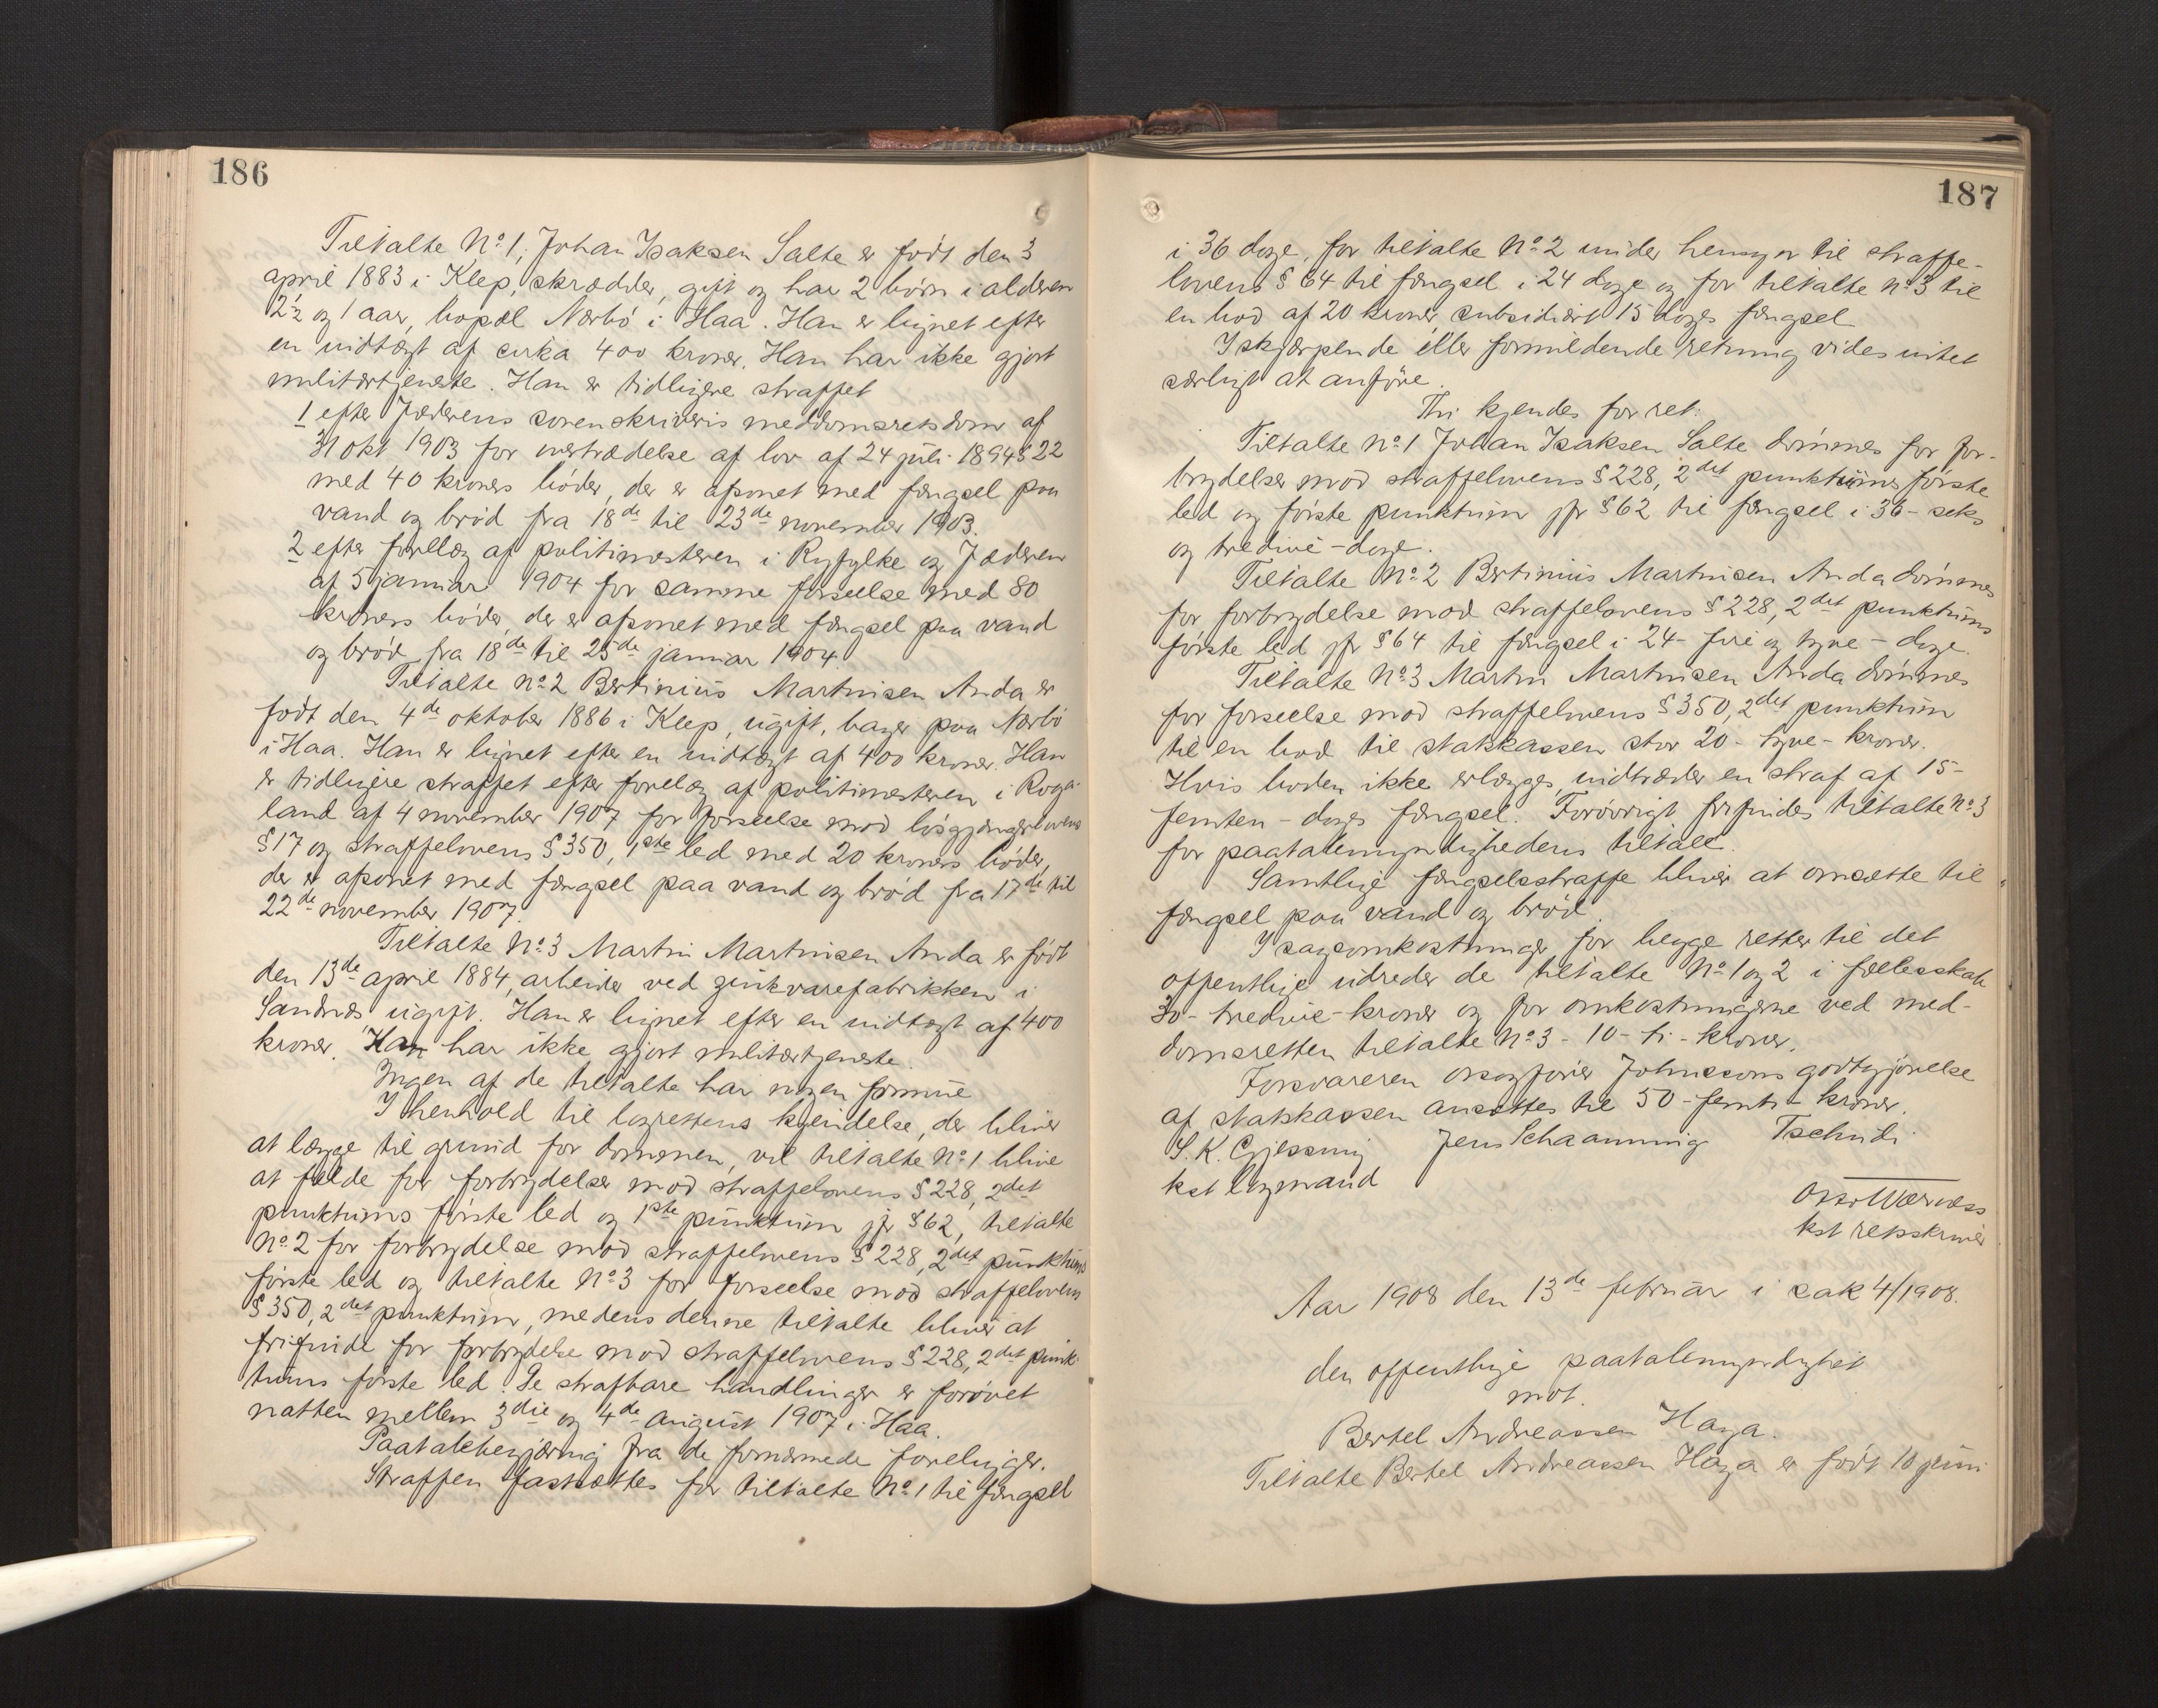 186
Tiltalte No 1, Johan Isaksen Salte er født den 3
april 1883 i Klep, skrædder, gift og har 2 børn i alderen
2½ og 1 aar, bopæl Nærbø i Haa. Han er lignet efter
en indtægt af cirka 400 kroner. Han har ikke gjort
militærtjeneste. Han er tidligere straffet
1 efter Jæderens sorenskriveris meddomsretsdom af
31 okt 1903 for overtrædelse af lov af 24 juli 1894 § 22
med 40 kroners bøder, der er afsonet med fængsel paa
vand og brød fra 18de til 23de november 1903.
2 efter forelæg af politimesteren i Ryfylke og Jæderen
af 5 januar 1904 for samme forseelse med 80
kroners bøder, der er afsonet med fængsel paa vand
og brød fra 18de til 25de januar 1904.
Tiltalte No 2 Bertinius Martinisen Anda er
født den 4de oktober 1886 i Klep, ugift, bager paa Nærbø
i Haa. Han er lignet efter en indtægt af 400 kroner. Han
er tidligere straffet efter forelæg af politimesteren i Roga-
land af 4 november 1907 for forseelse mod løsgjængerlovens
§ 17 og straffelovens § 350, 1ste led med 20 kroners bøder,
der er afsonet med fængsel paa vand og brød fra 17de til
22de november 1907.
Tiltalte No 3 Martin Martinisen Anda er født
den 13de april 1884, arbeider ved zinkvarefabrikken i
Sandnæs ugift. Han er lignet efter en indtægt af 400
kroner. Han har ikke gjort militærtjeneste.
Ingen af de tiltalte har nogen formue
I henhold til lagrettens kjendelse, der bliver
at lægge til grund for dommen, vil tiltalte No 1 blive
at fælde for forbrydelser mod straffelovens § 228, 2det
punktums første led og 1ste punktum jfr § 62, tiltalte
No 2 for forbrydelse mod straffelovens § 228, 2det punktums
første led og tiltalte No 3 for forseelse mod straffelovens
§ 350, 2det punktum, medens denne tiltalte bliver at
frifinde for forbrydelse mod straffelovens § 228, 2det punk-
tums første led. De strafbare handlinger er forøvet
natten mellem 3die og 4de august 1907 i Haa.
Paatalebegjæring fra de fornærmede foreligger.
Straffen fastsættes for tiltalte No 1 til fængsel
187
i 36 dage, for tiltalte No 2 under hensyn til straffe-
lovens § 64 til fængsel i 24 dage og for tiltalte No 3 til
en bod af 20 kroner, subsidiært 15 dages fængsel
I skjærpende eller formildende retning vides intet
særligt at anføre.
Thi kjendes for ret:
Tiltalte No 1 Johan Isaksen Salte dømmes for for-
brydelser mod straffelovens § 228, 2det punktums første
led og første punktum jfr § 62 til fængsel i 36 - seks
og tredive - dage.
Tiltalte No 2 Bertinius Martinisen Anda dømmes
for forbrydelse mod straffelovens § 228, 2det punktums
første led jfr § 64 til fængsel i 24 - fire og tyve - dage.
Tiltalte No 3 Martin Martinisen Anda dømmes
for forseelse mod straffelovens § 350, 2det punktum
til en bod til statskassen stor 20 - tyve - kroner.
Hvis boden ikke erlægges, indtræder en straf af 15 -
femten - dages fængsel. Forøvrigt frifindes tiltalte No 3
for paatalemyndighedens tiltale.
Samtlige fængselsstraffe bliver at omsætte til
fængsel paa vand og brød.
I sagsomkostninger for begge retter til det
offentlige udreder de tiltalte No 1 og 2 i fællesskab
30 - tredive - kroner og for omkostningerne ved med-
domsretten tiltalte No 3 - 10 - ti - kroner.
Forsvareren orsagfører Johnssons godtgjørelse
af statskassen ansættes til 50 - femti - kroner.
S. K. Gjessing Jens Schaanning Tschudi
kst lagmand
Werness
kst retsskriver
Aar 1908 den 13de februar i sak 4/1908.
den offentlige paatalemyndighet
mot.
Bertel Andreassen Haga.
Tiltalte Bertel Andreassen Haga er født 10 juni